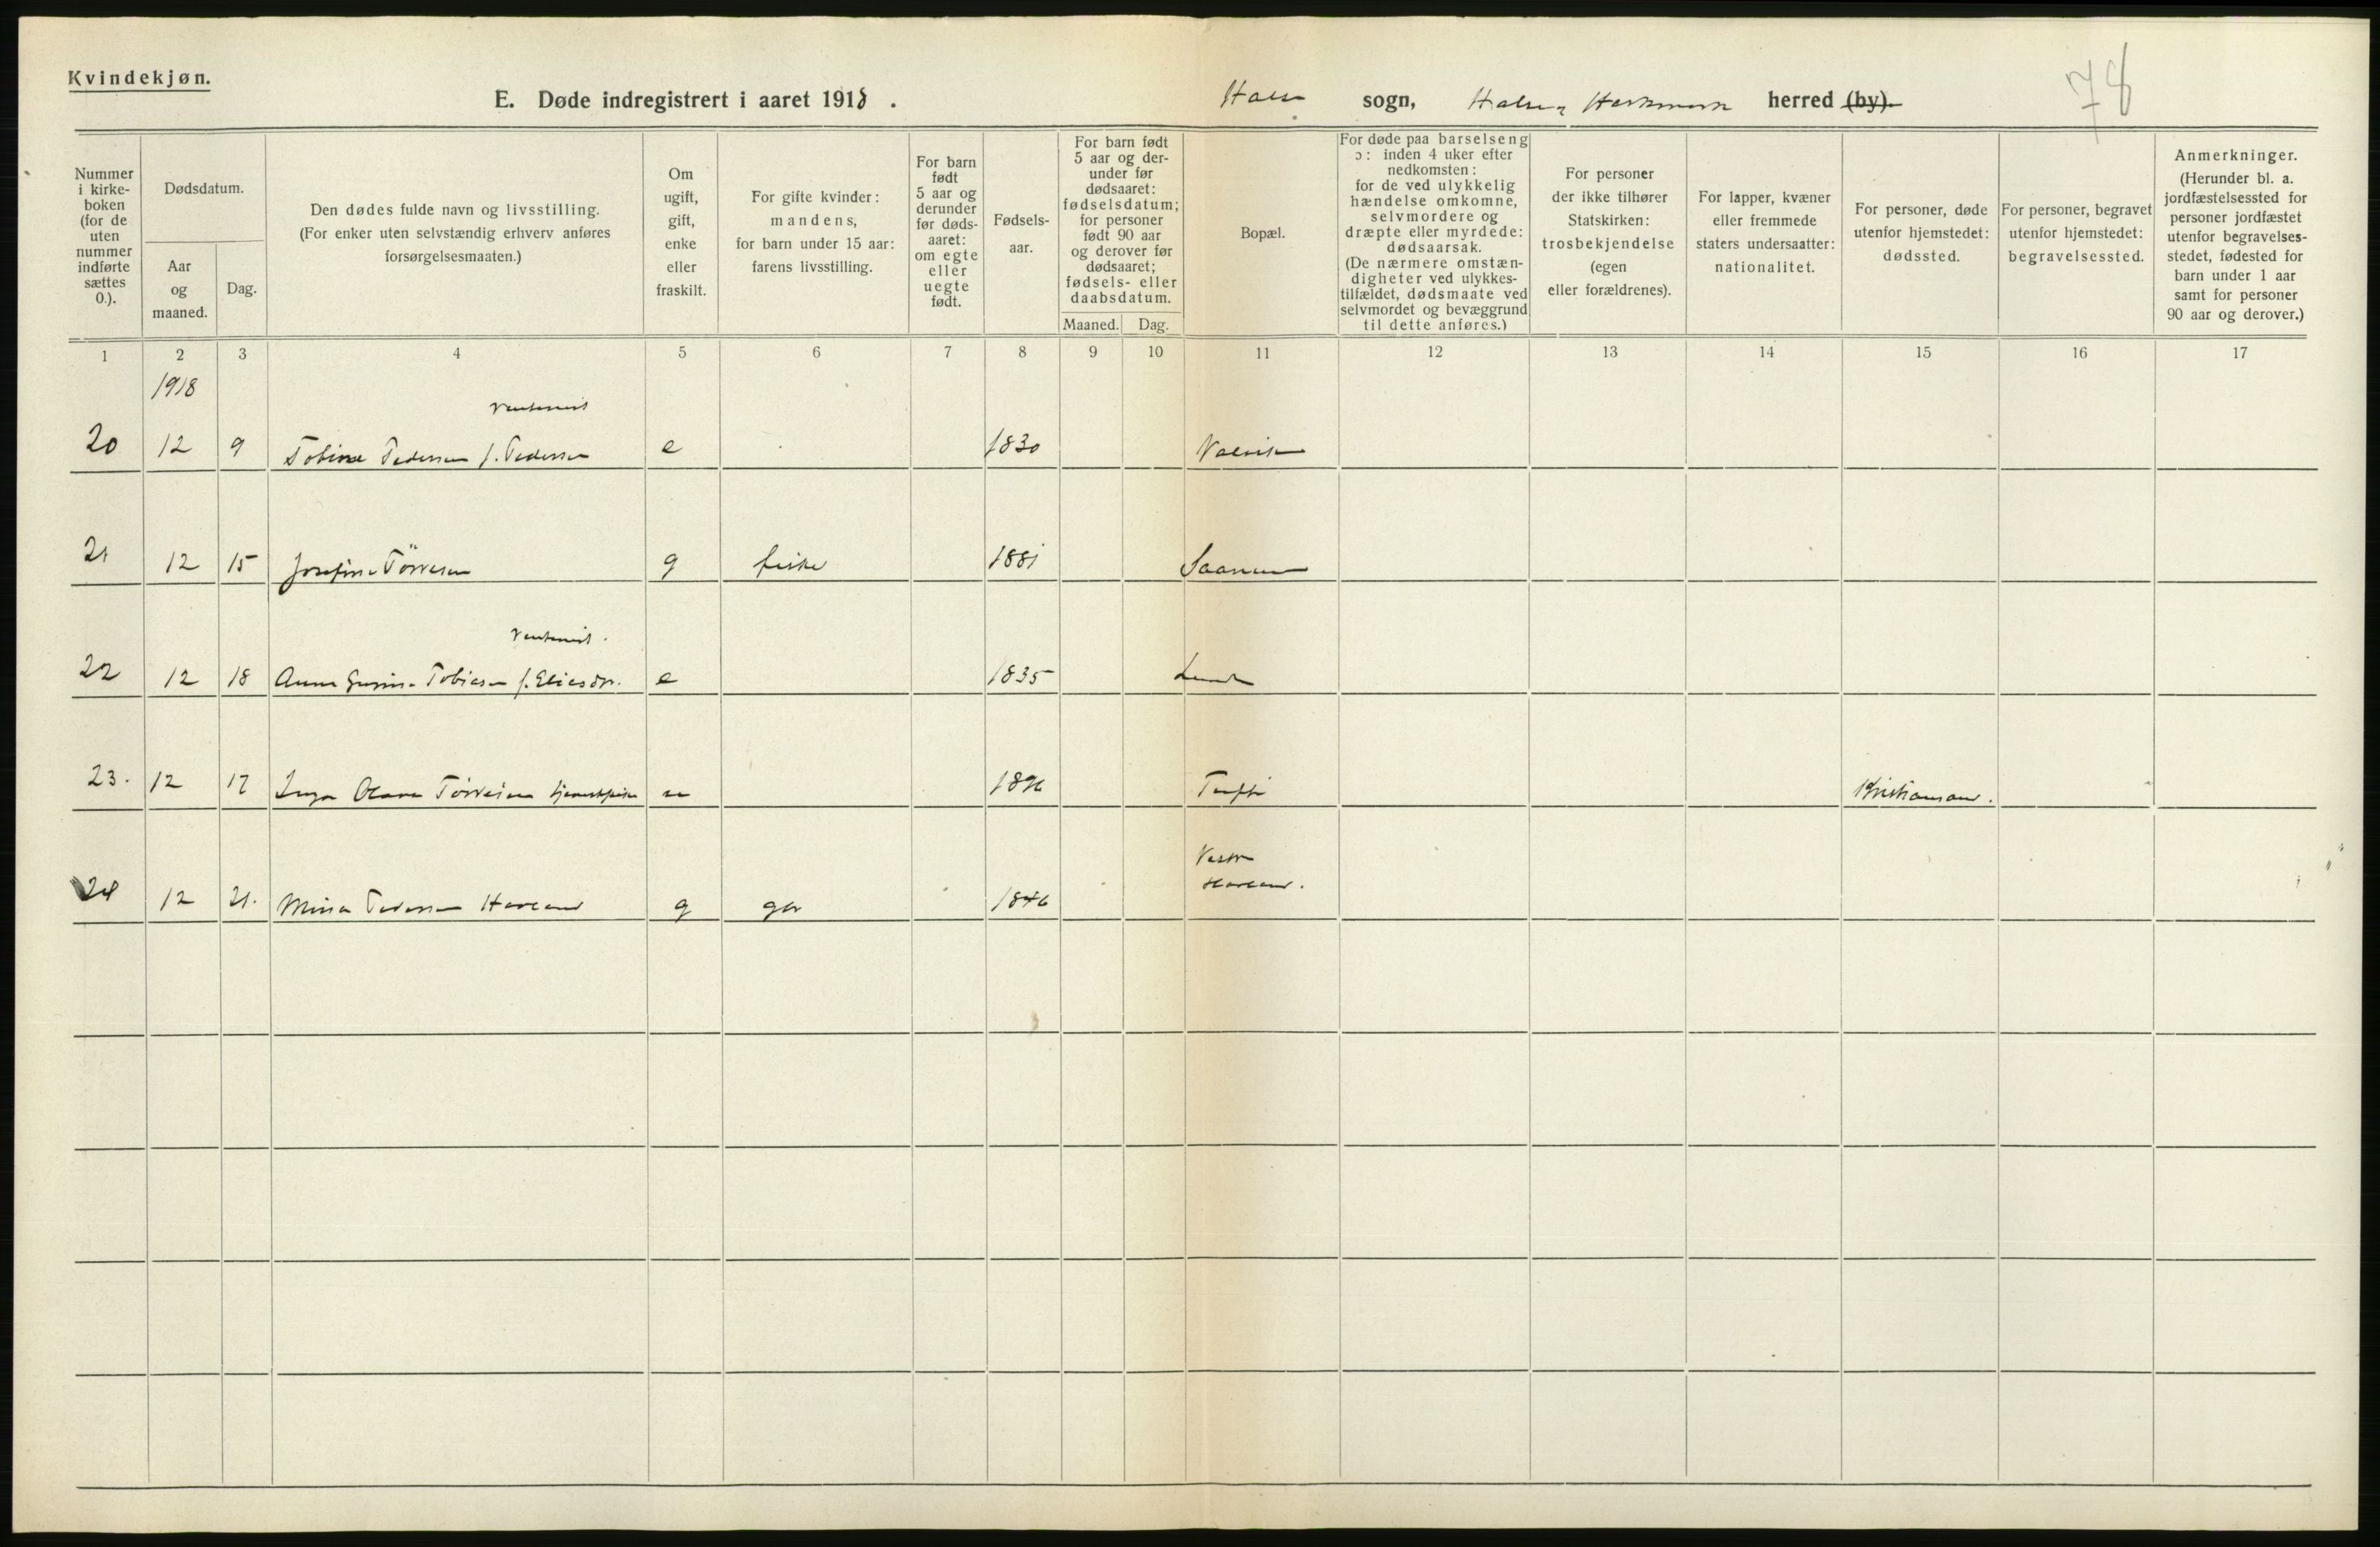 Kvindekjøn.
E. Døde indregistrert i aaret 1918.
Halse sogn, Halse & Harkmark herred (by).
78
Nummer i kirkeboken (for de uten nummer indførte sættes 0.).
Dødsdatum.
Aar og maaned.
Dag.
Den dødes fulde navn og livsstilling.
(For enker uten selvstændig erhverv anføres forsørgelsesmaaten.)
Om ugift, gift, enke eller fraskilt.
For gifte kvinder: mandens, for barn under 15 aar: farens livsstilling.
For barn født 5 aar og derunder før dødsaaret: om egte eller uegte født.
Fødselsaar.
For barn født 5 aar og derunder før dødsaaret: fødselsdatum; for personer født 90 aar og derover før dødsaaret; fødsels- eller daabsdatum.
Maaned.
Dag.
Bopæl.
For døde paa barselseng ɔ: inden 4 uker efter nedkomsten: for de ved ulykkelig hændelse omkomne, selvmordere og dræpte eller myrdede: dødsaarsak.
(De nærmere omstændigheter ved ulykkestilfældet, dødsmaate ved selvmordet og bevæggrund til dette anføres.)
For personer der ikke tilhører Statskirken: trosbekjendelse (egen eller forældrenes).
For lapper, kvæner eller fremmede staters undersaatter: nationalitet.
For personer, døde utenfor hjemstedet: dødssted.
For personer, begravet utenfor hjemstedet: begravelsessted.
Anmerkninger.
(Herunder bl. a. jordfæstelsessted for personer jordfæstet utenfor begravelsesstedet, fødested for barn under 1 aar samt for personer 90 aar og derover.)
1 2 3 4 5 6 7 8 9 10 11 12 13 14 15 16 17
1918
20 12 9 Tobine Pedersen f. Pedersen e 1830 Valvik
21 12 15 Josefine Törresen g fisker 1881 Saanum
22 12 18 Anna Tobiasen f. Eliasdtr. e 1835 Lunde
23. 12 17 Inga Olava Törresen u 1896 Kristiansand.
Vestre
24 12 21. Mina Pedersen Haaland g gbr 1846 Haaland.